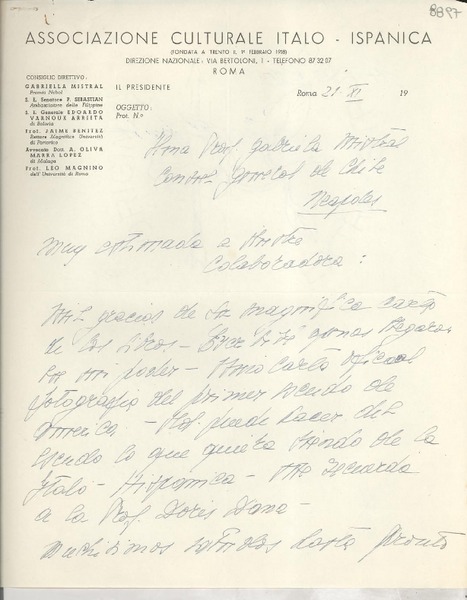 8897
ASSOCIAZIONE CULTURALE ITALO - ISPANICA
(FONDATA A TRENTO IL 1º FEBBRAIO 1918)
DIREZIONE NAZIONALE: VIA BERTOLONI, 1 - TELEFONO 87 32 07
ROMA
CONSIGLIO DIRETTIVO:
GABRIELLA MISTRAL
Premio Nobel
S. E. Senatore P. SEBASTIAN
Ambasciatore delle Filippine
S. E. Generale EDOARDO
VARNOUX ARRIETA
di Bolivia
Prof. JAIME BENITEZ
Rettore Magnifico Università
di Portorico
Avvocato Don A. OLIVA
MARRA LOPEZ
di Malaga
Prof. LEO MAGNINO
dell'Università di Roma
IL PRESIDENTE
OGGETTO:
Prot. Nº
Roma 21-XI- 19
Prof. Gabriela Mistral
General de Chile
Napoles
Muy estimada
Colaboradora:
Mil gracias de su magnifica carta
de los libros -
en mi poder -
fotografia del primer escudo de
America - Vd. puede hacer del
escudo lo que quiera
de la
Italo - Hispanica -
a la Prof. Doris Dana -
Muchisimos saludos hasta pronto